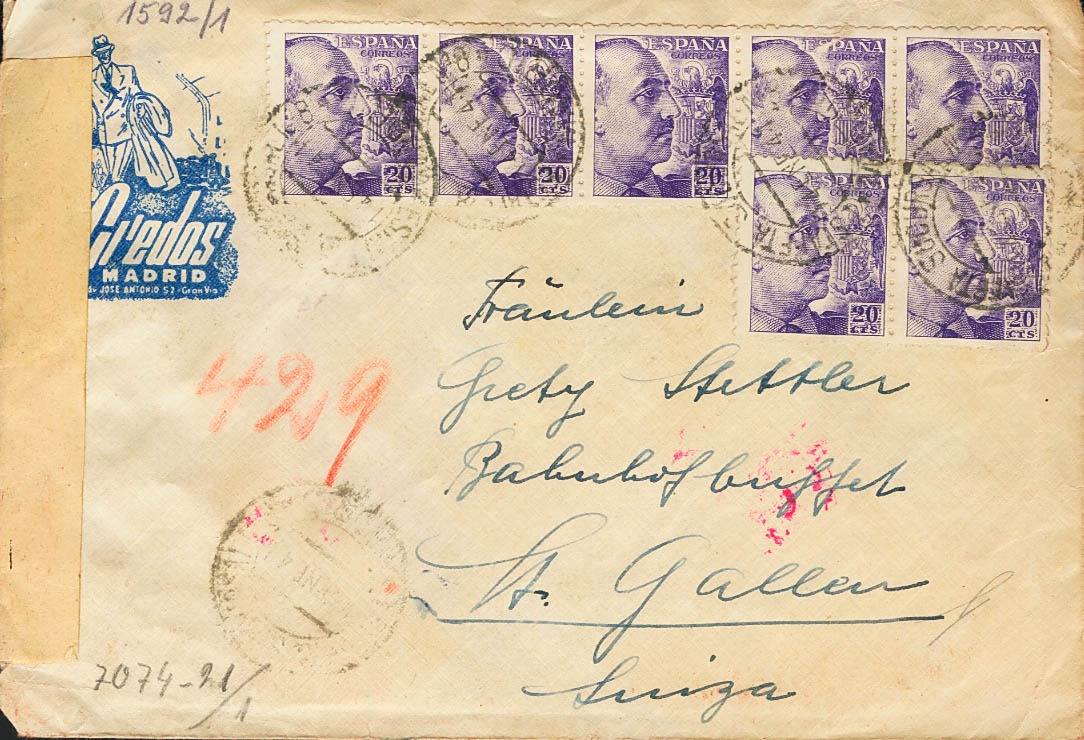 1592/1
ESPAÑA
CORREOS
ESPAÑA
CORREOS
ESPAÑA
CORREOS
ESPAÑA
CORREOS
ESPAÑA
CORREOS
20
CTS
20
CTS
20
CTS
ESPAÑA
CORREOS
ESPAÑA
CORREOS
20
CTS
20
CTS
Gredos
MADRID
JOSE ANTONIO 52 - Gran Via
Fräulein
Grety Stettler
Bahnhofbuffet
St. Gallen
Suiza
429
7074-21/1